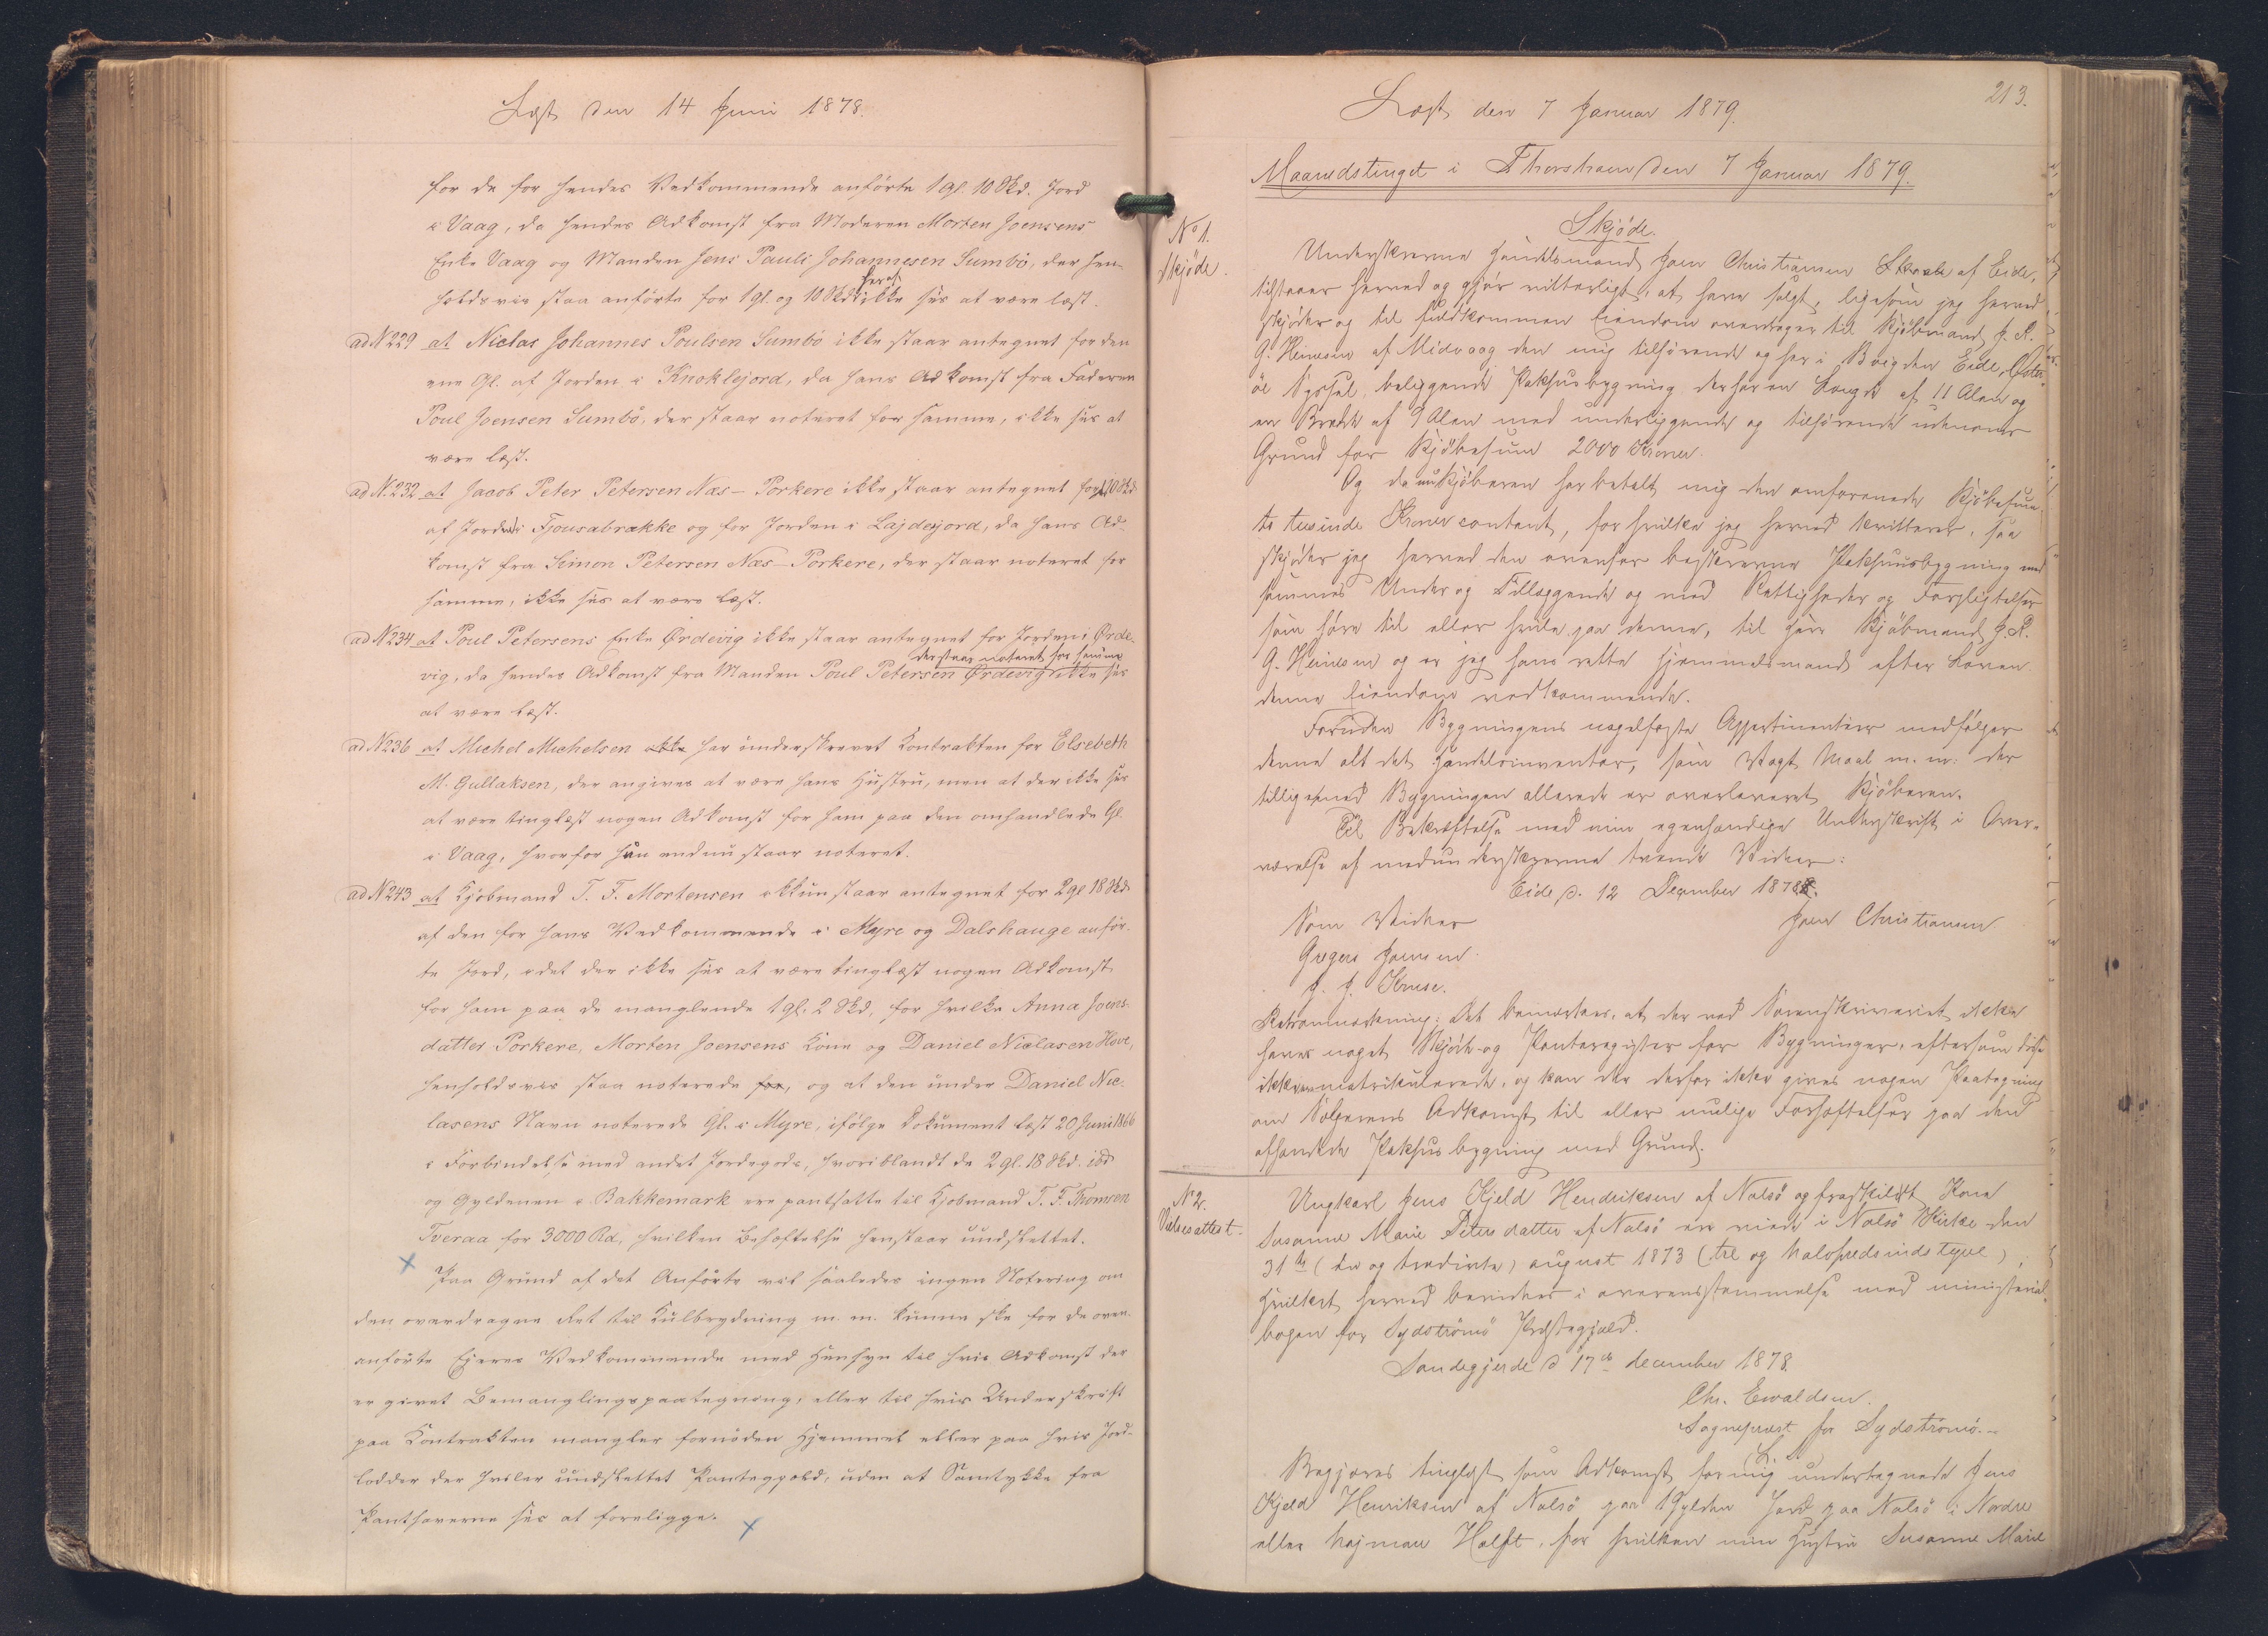 Læst den 14 Juni 1878.
for de for hendes Vedkommende anförte 1 gl. 10 Skd. Jord
i Vaag, da hendes Adkomst fra Moderen Morten Joensens
Enke Vaag og Manden Jens Pauli Johannesen Sumbö, der hen-
holdsvis staa anförte for 1 gl. og 10 Skd. heraf ikke ses at være læst.
ad N 229 at Niclas Johannes Poulsen Sumbö ikke staar antegnet for den
ene Gl. af Jorden i Knoklejord, da hans Adkomst fra Faderen
Poul Joensen Sumbö, der staar noteret for samme, ikke ses at
være læst.
ad N. 232 at Jacob Peter Petersen Næs-Porkere ikke staar antegnet for 10 Skd
af Jorden i Fjousabrække og for Jorden i Lajdejord, da hans Ad-
komst fra Simon Petersen Næs-Porkere, der staar noteret for
samme, ikke ses at være læst.
ad N 234 at Poul Petersens Enke Ørdevig ikke staar antegnet for Jorden i Örde-
vig, da hendes Adkomst fra Manden Poul Petersen Ördevig der staar noteret for samme ikke ses
at være læst.
ad N 236 at Michel Michelsen ikke har underskrevet Kontrakten for Elsebeth
M. Gullaksen, der angives at være hans Hustru, men at der ikke ses
at være tinglæst nogen Adkomst for ham paa den omhandlede Gl.
i Vaag, hvorfor hun endnu staar noteret.
ad N 243 at Kjöbmand T. F. Mortensen ikkun staar antegnet for 2 gl 18 Skd
af den for hans Vedkommende i Myre og Dalshauge anför-
te Jord, idet der ikke ses at være tinglæst nogen Adkomst
for ham paa de manglende 1 gl. 2 Skd, for hvilke Anna Joens-
datter Porkere, Morten Joensens Kone og Daniel Niclasen Hove,
henholdsvis staa noterede for, og at den under Daniel Nic-
lasens Navn noterede Gl. i Myre, ifölge Dokument læst 20 Juni 1866
i Forbindelse med andet Jordegods, hvoriblandt de 2 gl. 18 Skd. ibd
og Gyldenen i Bakkemark ere pantsatte til Kjöbmand T. F. Thomsen
Tveraa for 3000 Rd, hvilken Behæftelse henstaar uudslettet.
Paa Grund af det Anförte vil saaledes ingen Notering om
den overdragne Ret til Kulbrydning m. m. kunne ske for de oven-
anförte Ejeres Vedkommende med Hensyn til hvis Adkomst der
er givet Bemanglingspaategning, eller til hvis Underskrift
paa Kontrakten mangler fornöden Hjemmel eller paa hvis Jord-
lodder der hviler uudslettet Pantegjæld, uden at Samtykke fra
Panthaverne ses at foreligge.
213.
Læst den 7 Januar 1879.
Maanedstinget i Thorshavn den 7 Januar 1879.
No 1.
Skjöde.
Skjöde.
Underskrevne Handelsmand Joen Christiansen af Eide,
tilstaaer herved og gjör vitterligt, at have solgt, ligesom jeg herved
skjöder og til fuldkommen Eiendom overdrager til Kjöbmand J. P.
G. Heinesen af Midvaag den mig tilhörende og her i Böigden Eide, Öster-
ö Syssel, beliggende Pakhusbygning, der har en Længde af 11 Alen og
en Bredde af 9 Alen med underliggende og tilhörende udenoms
Grund for Kjöbesum 2000 Kroner.
Og da nu Kjöberen har betalt mig den omforenede Kjöbesum,
to tusinde Kroner contant, for hvilke jeg herved kvitterer, saa
skjöder jeg herved den ovenfor beskrevne Pakhuusbygning med
sammes Under og Tillæggende og med Rettigheder og Forpligtelser
som höre til eller hvile paa denne, til Herr Kjöbmand J. P.
G. Heinesen og er jeg hans rette Hjemmelsmand efter Loven
denne Eiendom vedkommende.
Foruden Bygningens nagelfaste Appertinentier medfölger
denne alt det Handelsinventar, som Vægt Maal m. m. der
tilligemed Bygningen allerede er overleveret Kjöberen.
Til Bekræftelse med min egenhændige Underskrift i Over-
værelse af medunderskrevne tvende Vidner:
Eide d. 12 December 1878.
Som Vidner
Joen Christiansen
Gregers Joensen.
J. J. Kruse.
Retsanmærkning: Det bemærkes, at der ved Sorenskriveriet ikke
haves noget Skjöde- og Panteregister for Bygninger, eftersom disse
ikke ere matrikulerede, og kan der derfor ikke gives nogen Paategning
om Sælgerens Adkomst til eller mulige Forhæftelser paa den
afhændede Pakhusbygning med Grund.
No 2.
Vielsesattest.
Ungkarl Jens Kjeld Hendriksen af Nolsö og fraskildt Kone
Susanne Marie Petersdatter af Nolsö ere viede i Nolsö Kirke den
31te (en og tredivte) august 1873 (tre og halvfredsindstyve),
hvilket herved bevidnes i overensstemmelse med ministerial-
bogen for Sydströmö Præstegjæld.
Sandegjerde d 17de december 1878.
Chr. Evaldsen.
Sognepræst for Sydströmö.-
Begjæres tinglyst som Adkomst for mig undertegnede Jens
Kjeld Henriksen af Nolsö paa 1 Gylden Jord paa Nolsö i Nordre
eller höjmau Halft, for hvilken min Hustru Susanne Marie